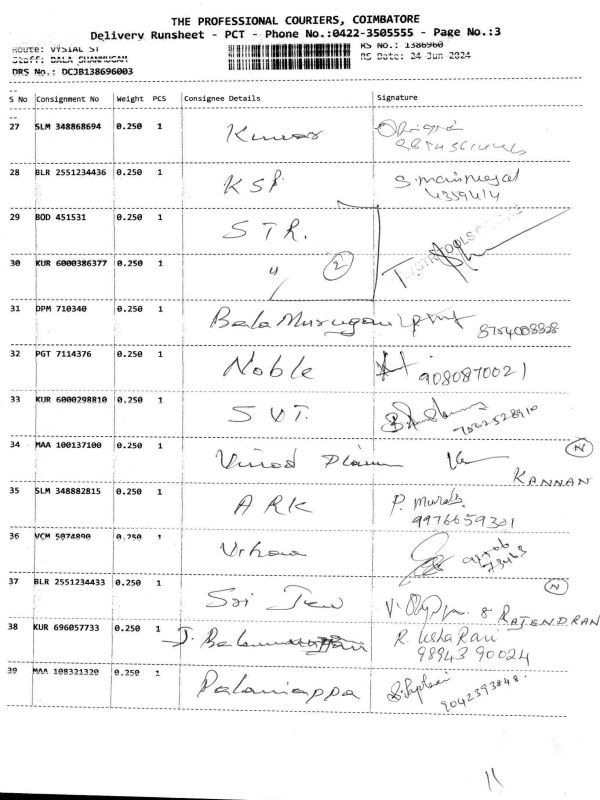 THE PROFESSIONAL COURIERS, COIMBATORE
Delivery Runsheet - PCT - Phone No.:0422-3505555 - Page No.:3
Route: VYSIAL ST
RS No.: 1386960
Staff: BALA SHANMUGAM
RS Date: 24-Jun-2024
DRS No.: DCJB138696003
S No Consignment No Weight PCS Consignee Details Signature
27 SLM 348868694 0.250 1 Kumar
28 BLR 2551234436 0.250 1 KSP.
4359414
29 BOD 451531 0.250 1 STR.
30 KUR 6000386377 0.250 1 " 2
31 DPM 710340 0.250 1 Bala Murugan
8754008828
32 PGT 7114376 0.250 1 Noble 9080870021
33 KUR 6000298810 0.250 1 SVT.
7062528910
34 MAA 100137100 0.250 1 Vinod N
KANNAN
35 SLM 348882815 0.250 1 ARK P. Murali
9976659301
36 VCM 5074890 0.250 1
37 BLR 2551234433 0.250 1 Sri N
RAJENDRAN
38 KUR 696057733 0.250 1 R. Usha Rani
98943 90024
39 MAA 108321320 0.250 1 Palaniappa
9042393848.
11